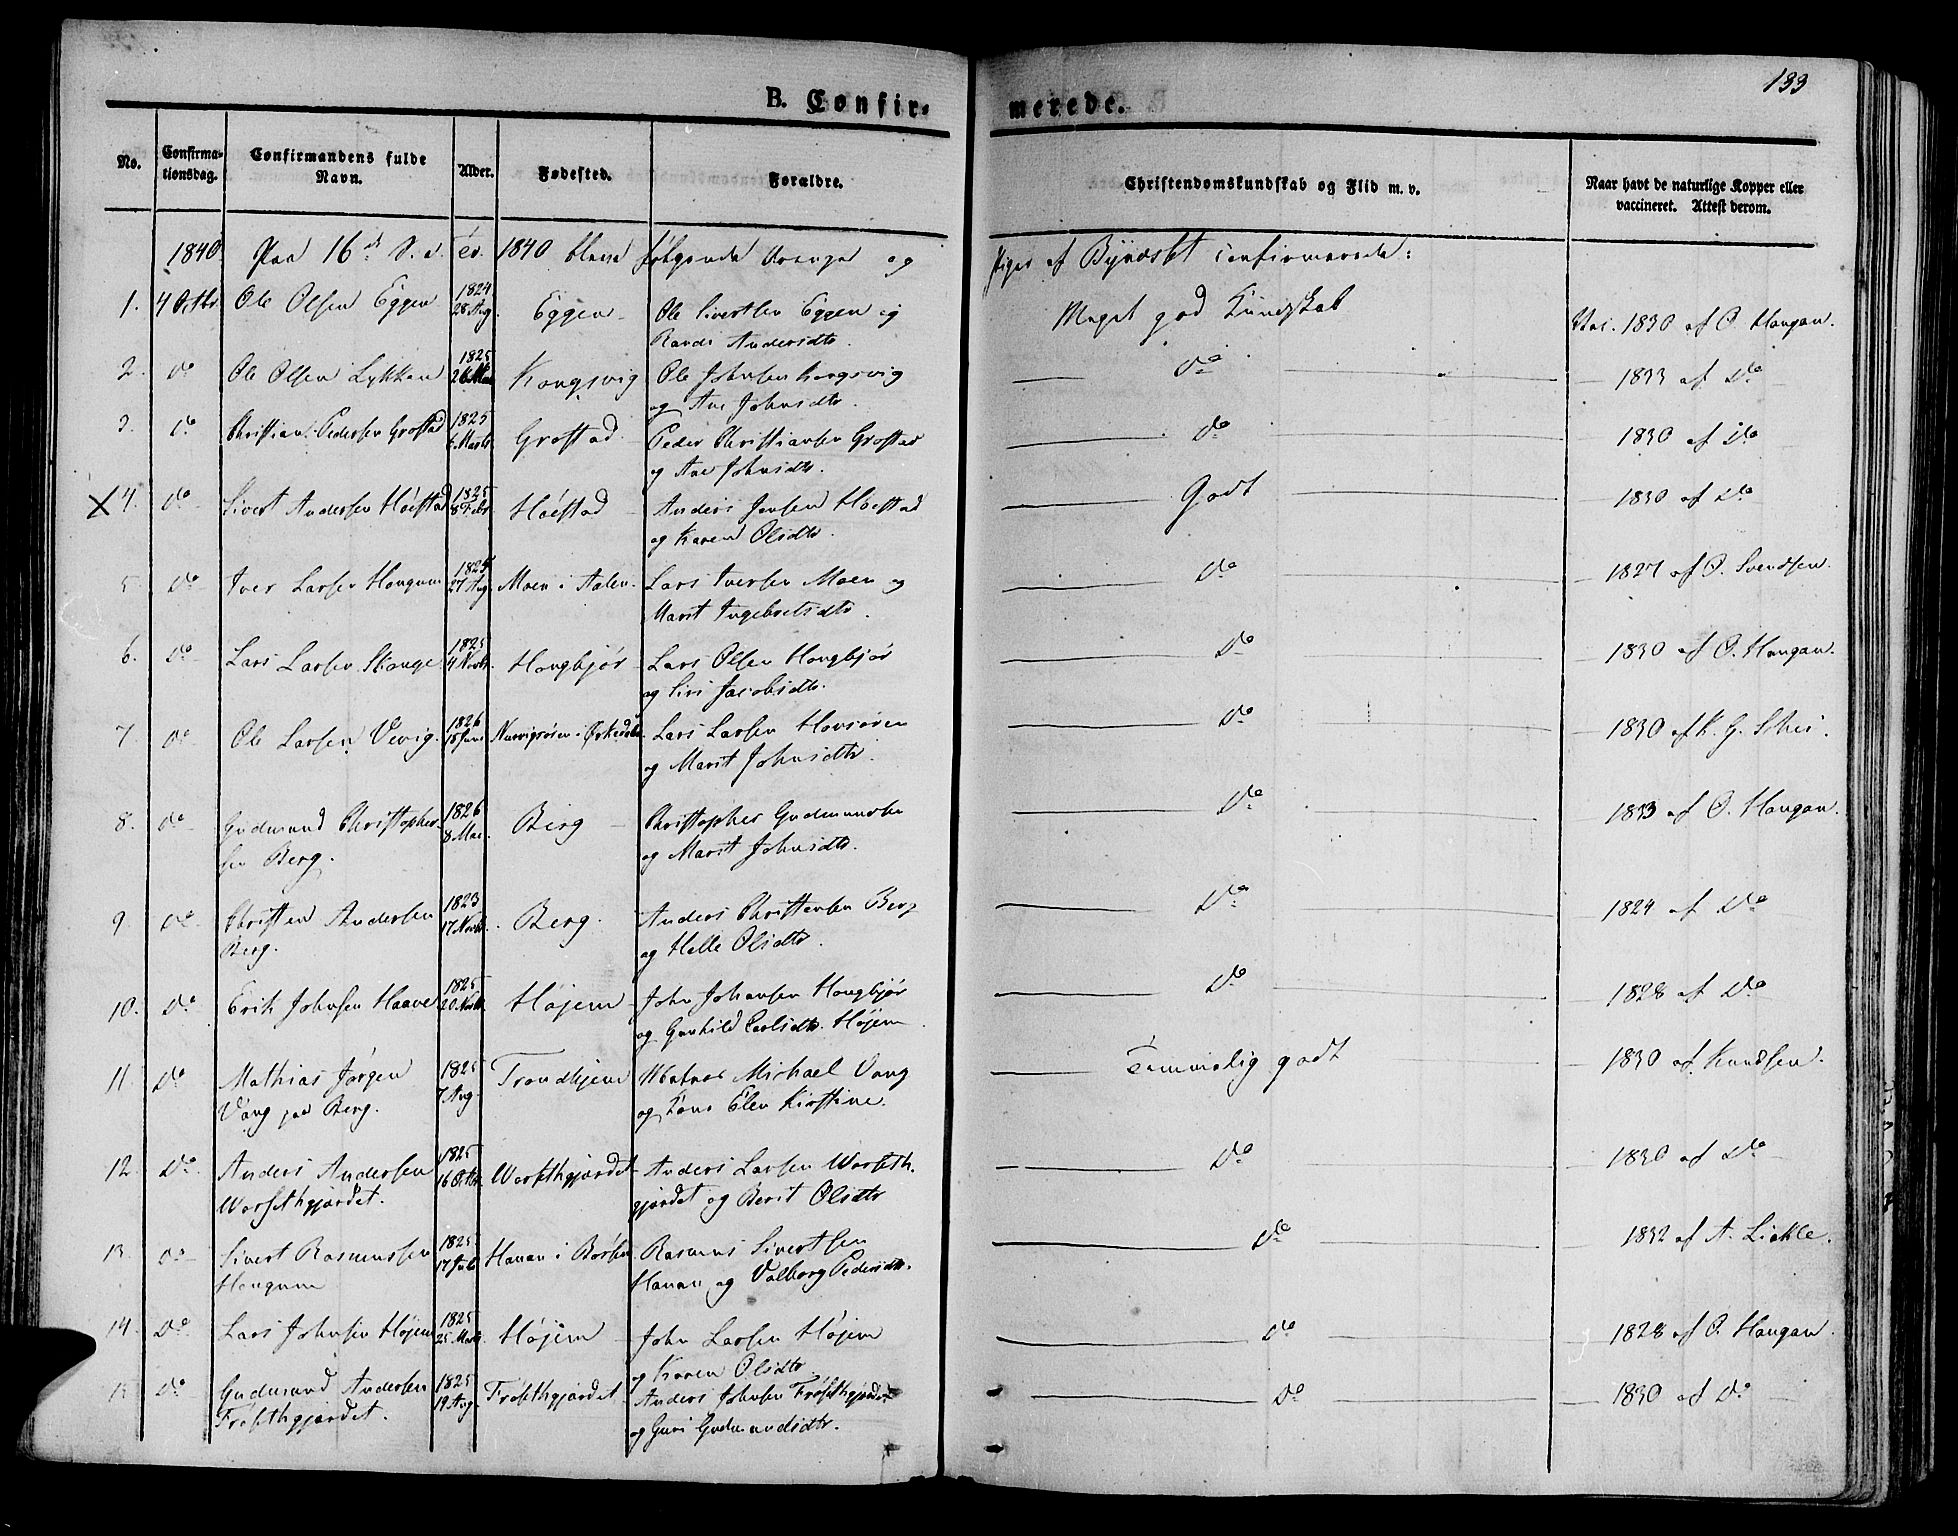 133
B. Confir-
merede.
No.
Confirma-
tionsdag.
Confirmandens fulde
Navn.
Alder.
Fødested.
Forældre.
Christendomskundskab og Flid m. v.
Naar havt de naturlige Kopper eller
vaccineret. Attest derom.
1840. Paa 16de S. e. 1840 bleve følgende Drenge og
Piger af Byneset confirmerede:
1. 4 Octbr Ole Olsen Eggen 1824 28 Aug. Eggen Ole Sivertsen Eggen og Meget god Kundskab Vac. 1830 af O. Haugan.
Randi Andersdtr.
2. do Ole Olsen Lykken 1825 Kongsvig Ole Johnsen Kongsvig do 1833 af do
og Ane Johnsdtr.
3. do Christian Pedersen Grostad 1825 Grostad Peder Christiansen Grostad do 1830 af do
og Ane Johnsdtr.
4. do Sivert Andersen Høistad 1825 8 Febr Høistad Anders Jensen Høistad Godt 1830 af do
og Karen Olsdtr.
5. do Iver Larsen Haugum 1825 27 Aug. Moen i Aalen Lars Iversen Moen og do 1827 af O. Svendsen.
Marit Ingebretsdtr.
6. do Lars Larsen Skauge 1825 4 Novbr. Haugbjør Lars Olsen Haugbjør do 1830 af O. Haugan.
og Siri Jacobsdtr.
7. do Ole Larsen Vevig 1826 Lars Larsen do 1830 af K. G. Skei.
og Marit Johnsdtr.
8. do Gudmund Christopher- 1826 8 Mai. Berg Christopher Gudmundsen do 1833 af O. Haugan.
sen Berg. og Marit Johnsdtr.
9. do Christen Andersen 1823 17 Novbr. Berg. Anders Christensen Berg do 1824 af do
Berg. og Helle Olsdtr.
10. do Erik Johnsen Haave 1825 20 Novbr. Højem John Johansen Haugbjør do 1828 af do
og Gunhild Carlsdtr. Højem
11. do Mathias Jørgen 1825 7 Aug. Trondhjem Michael Vang Temmelig godt 1830 af Knudsen.
Vang paa Berg. og Kone Elen Kirstine.
12. do Anders Andersen 1825 16 Octbr. Worsethgjærdet Anders Larsen Worseth- do 1830 af do
Worsethgjærdet. gjærdet og Berit Olsdtr
13. do Sivert Rasmussen 1825 17 Juli Hanan i Børsen Rasmus Sivertsen do 1832 af A. Lickle.
Haugum Hanan og Valborg Pedersdtr.
14. do Lars Johnsen Højem 1825 Højem John Larsen Højem do 1828 af O. Haugan.
og Karen Olsdtr
15 do Gudmund Andersen 1825 19 Aug. Frøsethgjærdet Anders Johnsen Frøsethgjærdet do 1830 af do
Frøsethgjærdet. og Guri Gudmundsdtr.